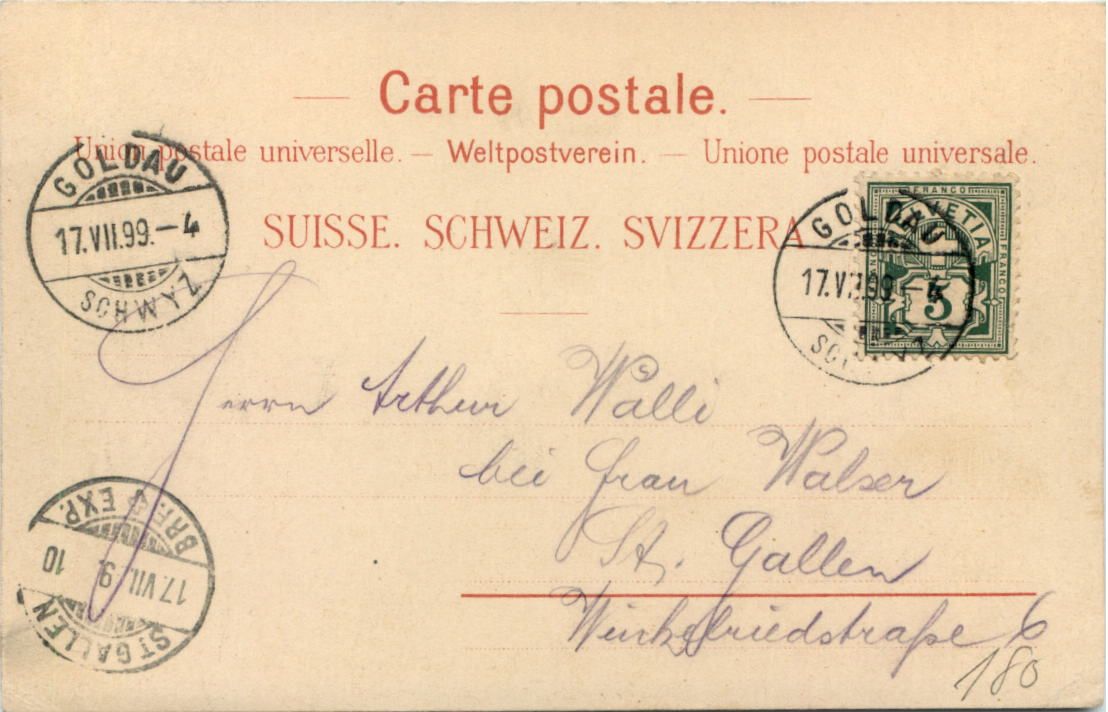 Carte postale.
Union postale universelle. — Weltpostverein. — Unione postale universale.
SUISSE. SCHWEIZ. SVIZZERA
GOLDAU
17.VII.99.–4
SCHWYZ
GOLDAU
17.VII.99.–4
SCHWYZ
FRANCO
HELVETIA
FRANCO
5
Herrn Arthur Wälli
bei Frau Walser
St. Gallen
Winkelriedstraße 6
180
BRF. EXP.
17.VII.9. 10
ST. GALLEN